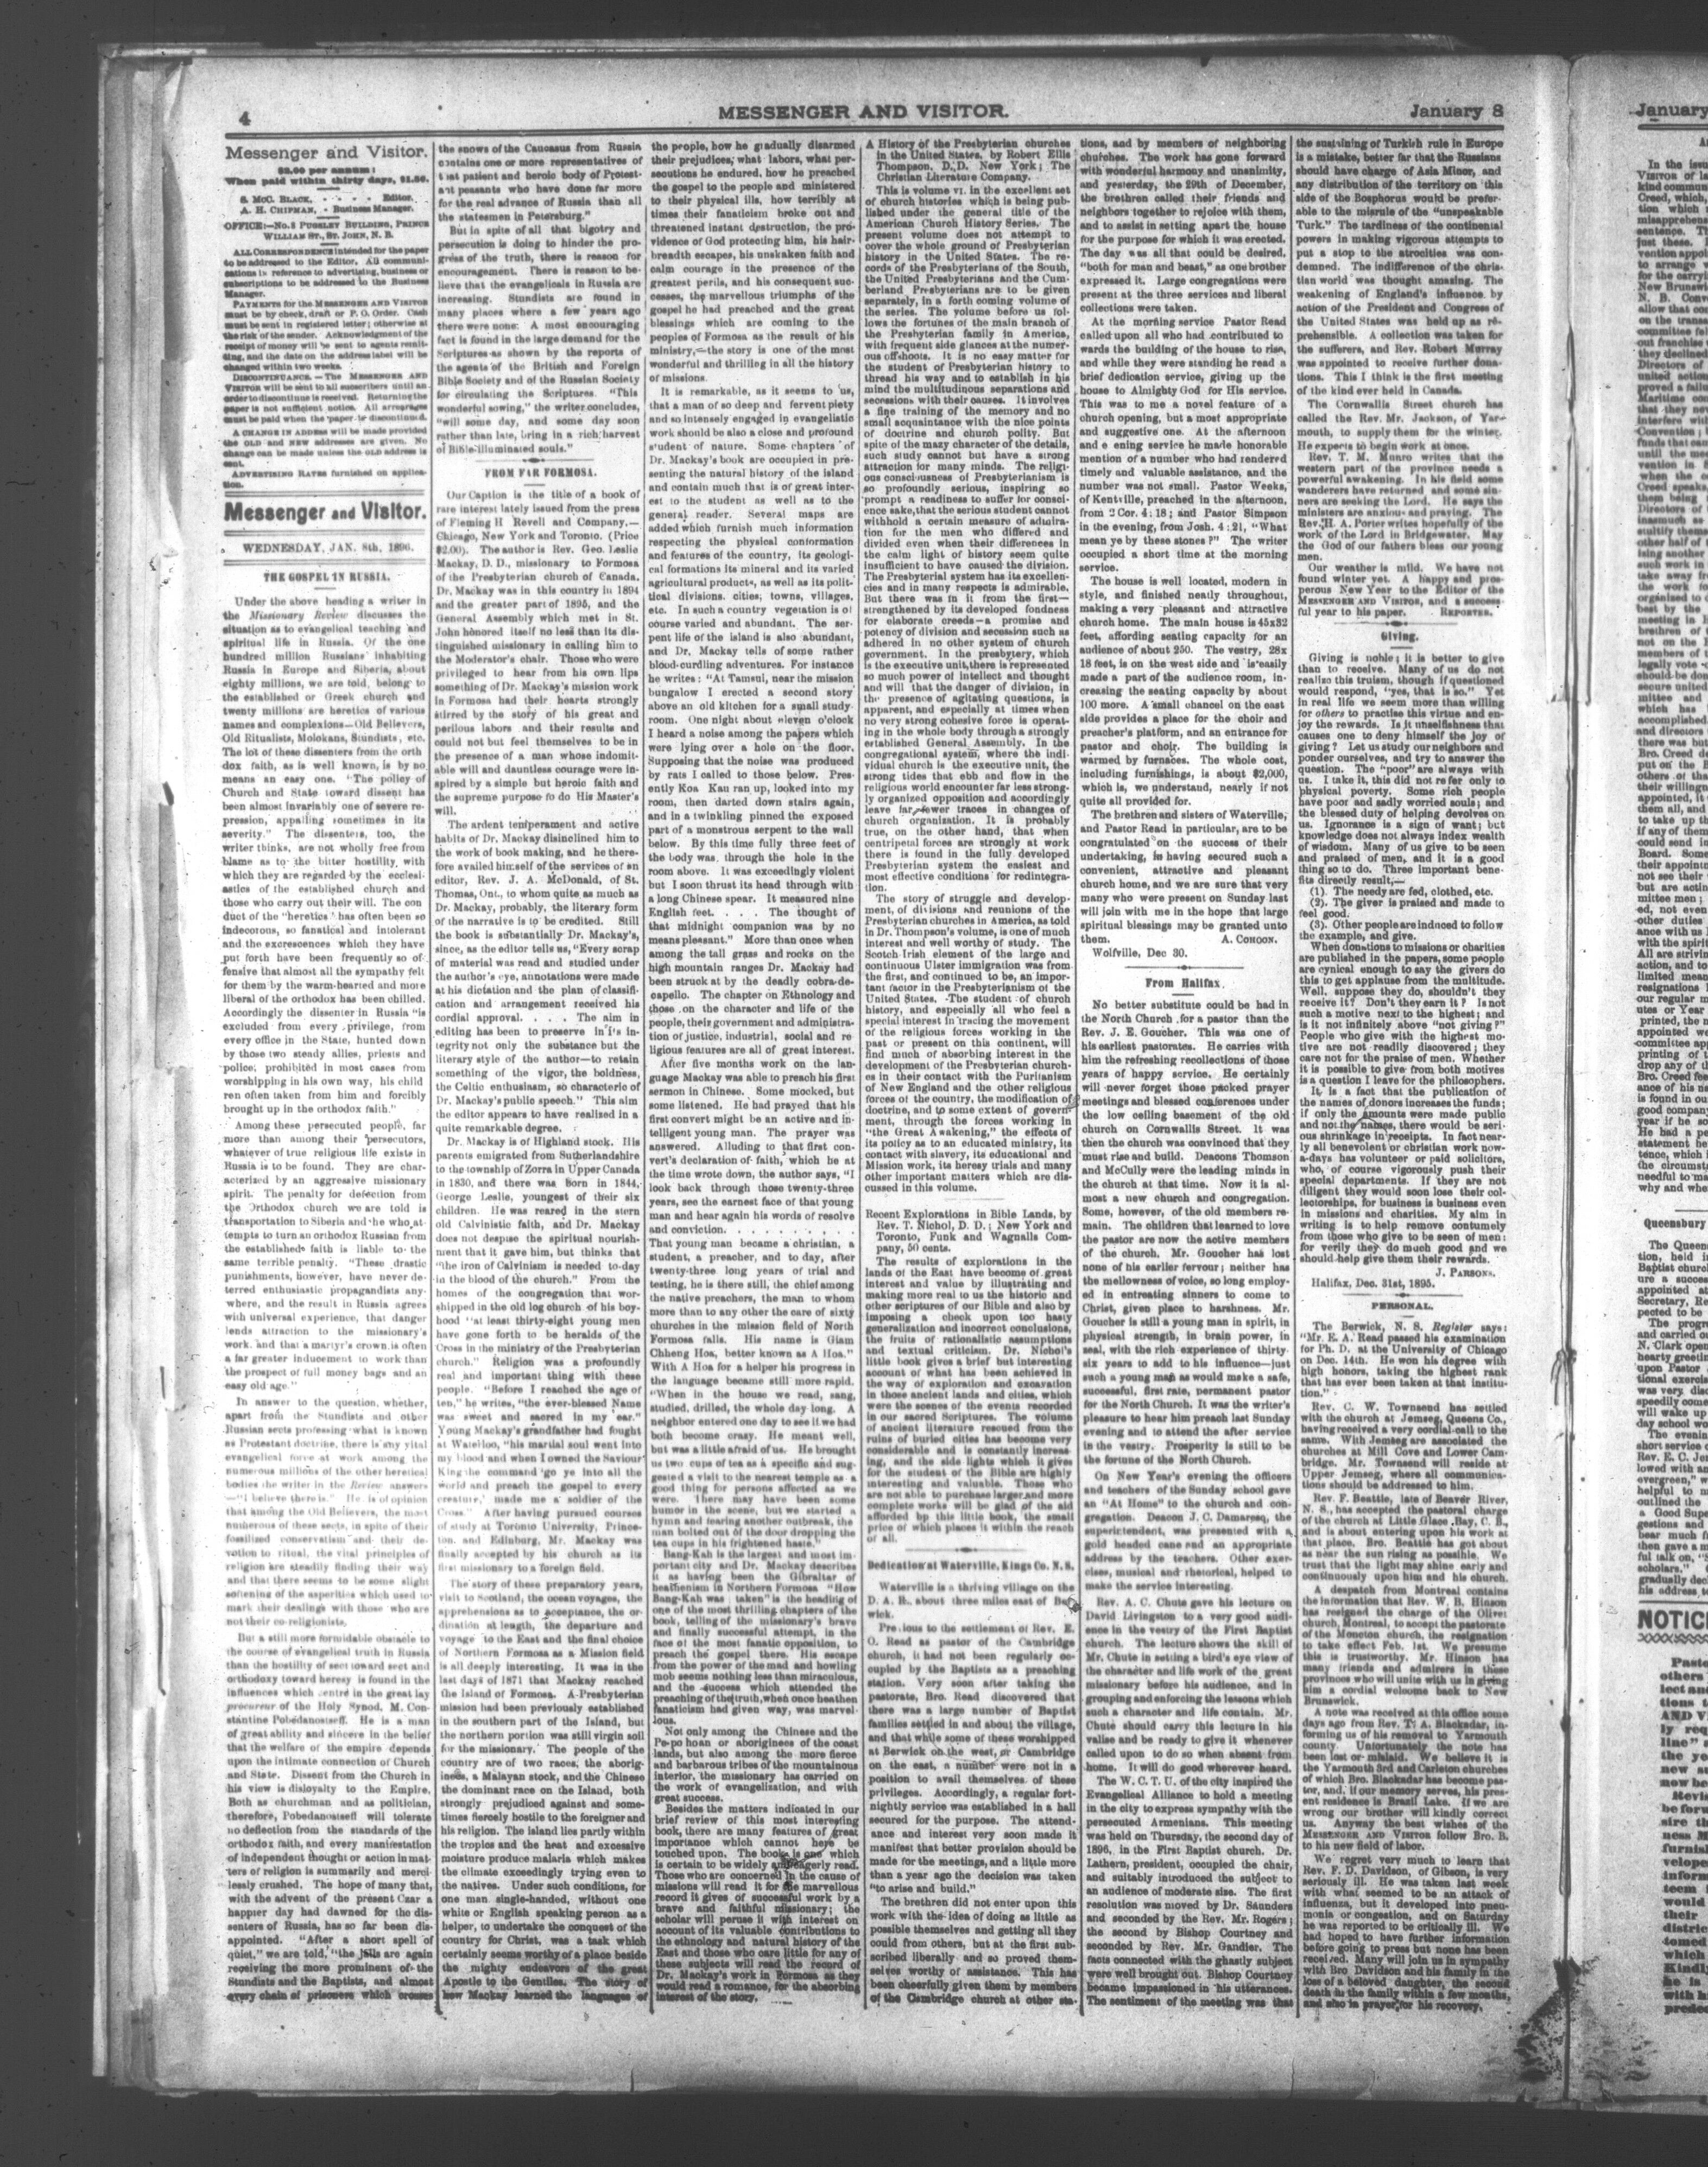 4
MESSENGER AND VISITOR.
January 8
Messenger and Visitor.
$2.00 per annum:
When paid within thirty days, $1.50.
S. McC. BLACK, - - - Editor.
A. H. CHIPMAN, - Business Manager.
OFFICE:—No. 8 PUGSLEY BUILDING, PRINCE
WILLIAM ST., ST. JOHN, N. B.
ALL CORRESPONDENCE intended for the paper
to be addressed to the Editor. All communi-
cations in reference to advertising, business or
subscriptions to be addressed to the Business
Manager.
PAYMENTS for the MESSENGER AND VISITOR
must be by check, draft or P. O. Order. Cash
must be sent in registered letter; otherwise at
the risk of the sender. Acknowledgment of the
receipt of money will be sent to agents remit-
ting, and the date on the address label will be
changed within two weeks.
DISCONTINUANCE.—The MESSENGER AND
VISITOR will be sent to all subscribers until an
order to discontinue is received. Returning the
paper is not sufficient notice. All arrearages
must be paid when the paper is discontinued.
A CHANGE IN ADDRESS will be made provided
the OLD and NEW addresses are given. No
change can be made unless the OLD address is
sent.
ADVERTISING RATES furnished on applica-
tion.
Messenger and Visitor.
WEDNESDAY, JAN. 8th, 1896.
THE GOSPEL IN RUSSIA.
Under the above heading a writer in
the Missionary Review discusses the
situation as to evangelical teaching and
spiritual life in Russia. Of the one
hundred million Russians inhabiting
Russia in Europe and Siberia, about
eighty millions, we are told, belong to
the established or Greek church and
twenty millions are heretics of various
names and complexions—Old Believers,
Old Ritualists, Molokans, Stundists, etc.
The lot of these dissenters from the orth
dox faith, as is well known, is by no
means an easy one. "The policy of
Church and State toward dissent has
been almost invariably one of severe re-
pression, appalling sometimes in its
severity." The dissenters, too, the
writer thinks, are not wholly free from
blame as to the bitter hostility with
which they are regarded by the ecclesi-
astics of the established church and
those who carry out their will. The con
duct of the "heretics" has often been so
indecorous, so fanatical and intolerant
and the excrescences which they have
put forth have been frequently so of-
fensive that almost all the sympathy felt
for them by the warm-hearted and more
liberal of the orthodox has been chilled.
Accordingly the dissenter in Russia "is
excluded from every privilege, from
every office in the State, hunted down
by those two steady allies, priests and
police; prohibited in most cases from
worshipping in his own way, his child
ren often taken from him and forcibly
brought up in the orthodox faith."
Among these persecuted people, far
more than among their persecutors,
whatever of true religious life exists in
Russia is to be found. They are char-
acterized by an aggressive missionary
spirit. The penalty for defection from
the Orthodox church we are told is
transportation to Siberia and he who at-
tempts to turn an orthodox Russian from
the established faith is liable to the
same terrible penalty. "These drastic
punishments, however, have never de-
terred enthusiastic propagandists any-
where, and the result in Russia agrees
with universal experience, that danger
lends attraction to the missionary's
work, and that a martyr's crown is often
a far greater inducement to work than
the prospect of full money bags and an
easy old age."
In answer to the question, whether,
apart from the Stundists and other
Russian sects professing what is known
as Protestant doctrine, there is any vital
evangelical force at work among the
numerous millions of the other heretical
bodies the writer in the Review answers
—"I believe there is." He is of opinion
that among the Old Believers, the most
numerous of these sects, in spite of their
fossilized conservatism and their de-
votion to ritual, the vital principles of
religion are steadily finding their way
and that there seems to be some slight
softening of the asperities which used to
mark their dealings with those who are
not their co-religionists.
But a still more formidable obstacle to
the course of evangelical truth in Russia
than the hostility of sect toward sect and
orthodoxy toward heresy is found in the
influences which centre in the great lay
procureur of the Holy Synod, M. Con-
stantine Pobedanostseff. He is a man
of great ability and sincere in the belief
that the welfare of the empire depends
upon the intimate connection of Church
and State. Dissent from the Church in
his view is disloyalty to the Empire.
Both as churchman and as politician,
therefore, Pobedanostseff will tolerate
no deflection from the standards of the
orthodox faith, and every manifestation
of independent thought or action in mat-
ters of religion is summarily and merci-
lessly crushed. The hope of many that,
with the advent of the present Czar a
happier day had dawned for the dis-
senters of Russia, has so far been dis-
appointed. "After a short spell of
quiet," we are told, "the jails are again
receiving the more prominent of the
Stundists and the Baptists, and almost
every chain of prisoners which crosses
the snows of the Caucasus from Russia
contains one or more representatives of
that patient and heroic body of Protest-
ant peasants who have done far more
for the real advance of Russia than all
the statesmen in Petersburg."
But in spite of all that bigotry and
persecution is doing to hinder the pro-
gress of the truth, there is reason for
encouragement. There is reason to be-
lieve that the evangelicals in Russia are
increasing. Stundists are found in
many places where a few years ago
there were none. A most encouraging
fact is found in the large demand for the
Scriptures as shown by the reports of
the agents of the British and Foreign
Bible Society and of the Russian Society
for circulating the Scriptures. "This
wonderful sowing," the writer concludes,
"will some day, and some day soon
rather than late, bring in a rich harvest
of Bible-illuminated souls."
FROM FAR FORMOSA.
Our Caption is the title of a book of
rare interest lately issued from the press
of Fleming H Revell and Company,—
Chicago, New York and Toronto. (Price
$2.00). The author is Rev. Geo. Leslie
Mackay, D. D., missionary to Formosa
of the Presbyterian church of Canada.
Dr. Mackay was in this country in 1894
and the greater part of 1895, and the
General Assembly which met in St.
John honored itself no less than its dis-
tinguished missionary in calling him to
the Moderator's chair. Those who were
privileged to hear from his own lips
something of Dr. Mackay's mission work
in Formosa had their hearts strongly
stirred by the story of his great and
perilous labors and their results and
could not but feel themselves to be in
the presence of a man whose indomit-
able will and dauntless courage were in-
spired by a simple but heroic faith and
the supreme purpose to do His Master's
will.
The ardent temperament and active
habits of Dr. Mackay disinclined him to
the work of book making, and he there-
fore availed himself of the services of an
editor, Rev. J. A. McDonald, of St.
Thomas, Ont., to whom quite as much as
Dr. Mackay, probably, the literary form
of the narrative is to be credited. Still
the book is substantially Dr. Mackay's,
since, as the editor tells us, "Every scrap
of material was read and studied under
the author's eye, annotations were made
at his dictation and the plan of classifi-
cation and arrangement received his
cordial approval. . . . The aim in
editing has been to preserve in its in-
tegrity not only the substance but the
literary style of the author—to retain
something of the vigor, the boldness,
the Celtic enthusiasm, so characteric of
Dr. Mackay's public speech." This aim
the editor appears to have realized in a
quite remarkable degree.
Dr. Mackay is of Highland stock. His
parents emigrated from Sutherlandshire
to the township of Zorra in Upper Canada
in 1830, and there was born in 1844,
George Leslie, youngest of their six
children. He was reared in the stern
old Calvinistic faith, and Dr. Mackay
does not despise the spiritual nourish-
ment that it gave him, but thinks that
"the iron of Calvinism is needed to-day
in the blood of the church." From the
homes of the congregation that wor-
shipped in the old log church of his boy-
hood "at least thirty-eight young men
have gone forth to be heralds of the
Cross in the ministry of the Presbyterian
church." Religion was a profoundly
real and important thing with these
people. "Before I reached the age of
ten," he writes, "the ever-blessed Name
was sweet and sacred in my ear."
Young Mackay's grandfather had fought
at Waterloo, "his martial soul went into
my blood and when I owned the Saviour
King the command 'go ye into all the
world and preach the gospel to every
creature,' made me a soldier of the
Cross." After having pursued courses
of study at Toronto University, Prince-
ton, and Edinburg, Mr. Mackay was
finally accepted by his church as its
first missionary to a foreign field.
The story of these preparatory years,
visit to Scotland, the ocean voyages, the
apprehensions as to acceptance, the or-
dination at length, the departure and
voyage to the East and the final choice
of Northern Formosa as a Mission field
is all deeply interesting. It was in the
last days of 1871 that Mackay reached
the island of Formosa. A Presbyterian
mission had been previously established
in the southern part of the Island, but
the northern portion was still virgin soil
for the missionary. The people of the
country are of two races, the aborig-
ines, a Malayan stock, and the Chinese
the dominant race on the Island, both
strongly prejudiced against and some-
times fiercely hostile to the foreigner and
his religion. The island lies partly within
the tropics and the heat and excessive
moisture produce malaria which makes
the climate exceedingly trying even to
the natives. Under such conditions, for
one man single-handed, without one
white or English speaking person as a
helper, to undertake the conquest of the
country for Christ, was a task which
certainly seems worthy of a place beside
the mighty endeavors of the great
Apostle to the Gentiles. The story of
how Mackay learned the languages of
the people, how he gradually disarmed
their prejudices, what labors, what per-
secutions he endured, how he preached
the gospel to the people and ministered
to their physical ills, how terribly at
times their fanaticism broke out and
threatened instant destruction, the pro-
vidence of God protecting him, his hair-
breadth escapes, his unskaken faith and
calm courage in the presence of the
greatest perils, and his consequent suc-
cesses, the marvellous triumphs of the
gospel he had preached and the great
blessings which are coming to the
peoples of Formosa as the result of his
ministry,—the story is one of the most
wonderful and thrillieg in all the history
of missions.
It is remarkable, as it seems to us,
that a man of so deep and fervent piety
and so intensely engaged in evangelistic
work should be also a close and profound
student of nature. Some chapters of
Dr. Mackay's book are occupied in pre-
senting the natural history of the island
and contain much that is of great inter-
est to the student as well as to the
general reader. Several maps are
added which furnish much information
respecting the physical conformation
and features of the country, its geologi-
cal formations its mineral and its varied
agricultural products, as well as its polit-
ical divisions. cities; towns, villages,
etc. In such a country vegetation is of
course varied and abundant. The ser-
pent life of the island is also abundant,
and Dr. Mackay tells of some rather
blood-curdling adventures. For instance
he writes: "At Tamsul, near the mission
bungalow I erected a second story
above an old kitchen for a small study-
room. One night about eleven o'clock
I heard a noise among the papers which
were lying over a hole on the floor.
Supposing that the noise was produced
by rats I called to those below. Pres-
ently Koa Kau ran up, looked into my
room, then darted down stairs again,
and in a twinkling pinned the exposed
part of a monstrous serpent to the wall
below. By this time fully three feet of
the body was through the hole in the
room above. It was exceedingly violent
but I soon thrust its head through with
a long Chinese spear. It measured nine
English feet. . . . The thought of
that midnight companion was by no
means pleasant." More than once when
among the tall grass and rocks on the
high mountain ranges Dr. Mackay had
been struck at by the deadly cobra-de-
capello. The chapter on Ethnology and
those on the character and life of the
people, their government and administra-
tion of justice, industrial, social and re
ligious features are all of great interest.
After five months work on the lan-
guage Mackay was able to preach his first
sermon in Chinese. Some mocked, but
some listened. He had prayed that his
first convert might be an active and in-
telligent young man. The prayer was
answered. Alluding to that first con-
vert's declaration of faith, which he at
the time wrote down, the author says, "I
look back through those twenty-three
years, see the earnest face of that young
man and hear again his words of resolve
and conviction. . . . . . . . .
That young man became a christian, a
student, a preacher, and to day, after
twenty-three long years of trial and
testing, he is there still, the chief among
the native preachers, the man to whom
more than to any other the care of sixty
churches in the mission field of North
Formosa falls. His name is Giam
Chheng Hoa, better known as A Hoa."
With A Hoa for a helper his progress in
the language became still more rapid.
"When in the house we read, sang,
studied, drilled, the whole day long. A
neighbor entered one day to see if we had
both become crazy. He meant well,
but was a little afraid of us. He brought
us two cups of tea as a specific and sug-
gested a visit to the nearest temple as a
good thing for persons affected as we
were. There may have been some
humor in the scene, but we started a
hymn and fearing another outbreak, the
man bolted out of the door dropping the
tea cups in his frightened haste."
Bang-Kah is the largest and most im-
portant city and Dr. Mackay describes
it as having been the Gibraltar of
heathenism in Northern Formosa "How
Bang-Kah was taken" is the heading of
one of the most thrilling chapters of the
book, telling of the missionary's brave
and finally successful attempt, in the
face of the most fanatic opposition, to
preach the gospel there. His escape
from the power of the mad and howling
mob seems nothing less than miraculous,
and the success which attended the
preaching of the truth, when once heathen
fanaticism had given way, was marvel-
lous.
Not only among the Chinese and the
Pe-po hoan or aborigines of the coast
lands, but also among the more fierce
and barbarous tribes of the mountainous
interior, the missionary has carried on
the work of evangelization, and with
great success.
Besides the matters indicated in our
brief review of this most interesting
book, there are many features of great
importance which cannot here be
touched upon. The book is one which
is certain to be widely and eagerly read.
Those who are concerned in the cause of
missions will read it for the marvellous
record it gives of successful work by a
brave and faithful missionary; the
scholar will peruse it with interest on
account of its valuable contributions to
the ethnology and natural history of the
East and those who care little for any of
these subjects will read the record of
Dr. Mackay's work in Formosa as they
would read a romance, for the absorbing
interest of the story.
A History of the Presbyterian churches
in the United States, by Robert Ellis
Thompson, D. D. New York; The
Christian Literature Company.
This is volume vi. in the excellent set
of church histories which is being pub-
lished under the general title of the
American Church History Series. The
present volume does not attempt to
cover the whole ground of Presbyterian
history in the United States. The re-
cords of the Presbyterians of the South,
the United Presbyterians and the Cum-
berland Presbyterians are to be given
separately, in a forth coming volume of
the series. The volume before us fol-
lows the fortunes of the main branch of
the Presbyterian family in America,
with frequent side glances at the numer-
ous offshoots. It is no easy matter for
the student of Presbyterian history to
thread his way and to establish in his
mind the multitudinous separations and
secessions with their causes. It involves
a fine training of the memory and no
small acquaintance with the nice points
of doctrine and church polity. But
spite of the mazy character of the details,
such study cannot but have a strong
attraction for many minds. The religi-
ous consciousness of Presbyterianism is
so profoundly serious, inspiring so
prompt a readiness to suffer for consci-
ence sake, that the serious student cannot
withhold a certain measure of admira-
tion for the men who differed and
divided even when their differences in
the calm light of history seem quite
insufficient to have caused the division.
The Presbyterial system has its excellen-
cies and in many respects is admirable.
But there was in it from the first—
strengthened by its developed fondness
for elaborate creeds—a promise and
potency of division and secession such as
adhered in no other system of church
government. In the presbytery, which
is the executive unit, there is represented
so much power of intellect and thought
and will that the danger of division, in
the presence of agitating questions, is
apparent, and especially at times when
no very strong cohesive force is operat-
ing in the whole body through a strongly
established General Assembly. In the
congregational system, where the indi-
vidual church is the executive unit, the
strong tides that ebb and flow in the
religious world encounter far less strong-
ly organized opposition and accordingly
leave far fewer traces in changes of
church organization. It is probably
true, on the other hand, that when
centripetal forces are strongly at work
there is found in the fully developed
Presbyterian system the easiest and
most effective conditions for redintegra-
tion.
The story of struggle and develop-
ment, of divisions and reunions of the
Presbyterian churches in America, as told
in Dr. Thompson's volume, is one of much
interest and well worthy of study. The
Scotch-Irish element of the large and
continuous Ulster immigration was from
the first, and continued to be, an impor-
tant factor in the Presbyterianism of the
United States. The student of church
history, and especially all who feel a
special interest in tracing the movement
of the religious forces working in the
past or present on this continent, will
find much of absorbing interest in the
development of the Presbyterian church-
es in their contact with the Puritanism
of New England and the other religious
forces of the country, the modification of
doctrine, and to some extent of govern-
ment, through the forces working in
"the Great Awakening," the effects of
its policy as to an educated ministry, its
contact with slavery, its educational and
Mission work, its heresy trials and many
other important matters which are dis-
cussed in this volume.
Recent Explorations in Bible Lands, by
Rev. T. Nichol, D. D.; New York and
Toronto, Funk and Wagnalls Com-
pany, 50 cents.
The results of explorations in the
lands of the East have become of great
interest and value by illustrating and
making more real to us the historic and
other scriptures of our Bible and also by
imposing a check upon too hasty
generalization and incorrect conclusions,
the fruits of rationalistic assumptions
and textual criticism. Dr. Nichol's
little book gives a brief but interesting
account of what has been achieved in
the way of exploration and excavation
in those ancient lands and cities, which
were the scenes of the events recorded
in our sacred Scriptures. The volume
of ancient literature rescued from the
ruins of buried cities has become very
considerable and is constantly increas-
ing, and the side lights which it gives
for the student of the Bible are highly
interesting and valuable. Those who
are not able to purchase larger and more
complete works will be glad of the aid
afforded by this little book, the small
price of which places it within the reach
of all.
Dedication at Waterville, Kings Co. N. S.
Waterville is a thriving village on the
D. A. R., about three miles east of Ber-
wick.
Previous to the settlement of Rev. E.
O. Read as pastor of the Cambridge
church, it had not been regularly oc-
cupied by the Baptists as a preaching
station. Very soon after taking the
pastorate, Bro. Read discovered that
there was a large number of Baptist
families settled in and about the village,
and that while some of these worshipped
at Berwick on the west, or Cambridge
on the east, a number were not in a
position to avail themselves of these
privileges. Accordingly, a regular fort-
nightly service was established in a hall
secured for the purpose. The attend-
ance and interest very soon made it
manifest that better provision should be
made for the meetings, and a little more
than a year ago the decision was taken
"to arise and build."
The brethren did not enter upon this
work with the idea of doing as little as
possible themselves and getting all they
could from others, but at the first sub-
scribed liberally and so proved them-
selves worthy of assistance. This has
been cheerfully given them by members
of the Cambridge church at other sta-
tions, and by members of neighboring
churches. The work has gone forward
with wonderful harmony and unanimity,
and yesterday, the 29th of December,
the brethren called their friends and
neighbors together to rejoice with them,
and to assist in setting apart the house
for the purpose for which it was erected.
The day was all that could be desired,
"both for man and beast," as one brother
expressed it. Large congregations were
present at the three services and liberal
collections were taken.
At the morning service Pastor Read
called upon all who had contributed to
wards the building of the house to rise,
and while they were standing he read a
brief dedication service, giving up the
house to Almighty God for His service.
This was to me a novel feature of a
church opening, but a most appropriate
and suggestive one. At the afternoon
and evening service he made honorable
mention of a number who had rendered
timely and valuable assistance, and the
number was not small. Pastor Weeks,
of Kentville, preached in the afternoon,
from 2 Cor. 4:18; and Pastor Simpson
in the evening, from Josh. 4:21, "What
mean ye by these stones?" The writer
occupied a short time at the morning
service.
The house is well located, modern in
style, and finished neatly throughout,
making a very pleasant and attractive
church home. The main house is 45x32
feet, affording seating capacity for an
audience of about 250. The vestry, 28x
18 feet, is on the west side and is easily
made a part of the audience room, in-
creasing the seating capacity by about
100 more. A small chancel on the east
side provides a place for the choir and
preacher's platform, and an entrance for
pastor and choir. The building is
warmed by furnaces. The whole cost,
including furnishings, is about $2,000,
which is, we understand, nearly if not
quite all provided for.
The brethren and sisters of Waterville,
and Pastor Read in particular, are to be
congratulated on the success of their
undertaking, in having secured such a
convenient, attractive and pleasant
church home, and we are sure that very
many who were present on Sunday last
will join with me in the hope that large
spiritual blessings may be granted unto
them. A. COHOON.
Wolfville, Dec 30.
From Halifax.
No better substitute could be had in
the North Church for a pastor than the
Rev. J. E. Goucher. This was one of
his earliest pastorates. He carries with
him the refreshing recollections of those
years of happy service. He certainly
will never forget those packed prayer
meetings and blessed conferences under
the low ceiling basement of the old
church on Cornwallis Street. It was
then the church was convinced that they
must rise and build. Deacons Thomson
and McCully were the leading minds in
the church at that time. Now it is al-
most a new church and congregation.
Some, however, of the old members re-
main. The children that learned to love
the pastor are now the active members
of the church. Mr. Goucher has lost
none of his earlier fervour; neither has
the mellowness of voice, so long employ-
ed in entreating sinners to come to
Christ, given place to harshness. Mr.
Goucher is still a young man in spirit, in
physical strength, in brain power, in
zeal, with the rich experience of thirty-
six years to add to his influence—just
such a young man as would make a safe,
successful, first rate, permanent pastor
for the North Church. It was the writer's
pleasure to hear him preach last Sunday
evening and to attend the after service
in the vestry. Prosperity is still to be
the fortune of the North Church.
On New Year's evening the officers
and teachers of the Sunday school gave
an "At Home" to the church and con-
gregation. Deacon J. C. Damaresq, the
superintendent, was presented with a
gold headed cane and an appropriate
address by the teachers. Other exer-
cises, musical and rhetorical, helped to
make the service interesting.
Rev. A. C. Chute gave his lecture on
David Livingston to a very good audi-
ence in the vestry of the First Baptist
church. The lecture shows the skill of
Mr. Chute in setting a bird's eye view of
the character and life work of the great
missionary before his audience, and in
grouping and enforcing the lessons which
such a character and life contain. Mr.
Chute should carry this lecture in his
valise and be ready to give it whenever
called upon to do so when absent from
home. It will do good wherever heard.
The W. C. T. U. of the city inspired the
Evangelical Alliance to hold a meeting
in the city to express sympathy with the
persecuted Armenians. This meeting
was held on Thursday, the second day of
1896, in the First Baptist church. Dr.
Lathern, president, occupied the chair,
and suitably introduced the subject to
an audience of moderate size. The first
resolution was moved by Dr. Saunders
and seconded by the Rev. Mr. Rogers;
the second by Bishop Courtney and
seconded by Rev. Mr. Gandier. The
facts connected with the ghastly subject
were well brought out. Bishop Courtney
became impassioned in his utterances.
The sentiment of the meeting was that
the sustaining of Turkish rule in Europe
is a mistake, better far that the Russians
should have charge of Asia Minor, and
any distribution of the territory on this
side of the Bosphorus would be prefer-
able to the misrule of the "unspeakable
Turk." The tardiness of the continental
powers in making vigorous attempts to
put a stop to the atrocities was con-
demned. The indifference of the chris-
tian world was thought amazing. The
weakening of England's influence by
action of the President and Congress of
the United States was held up as re-
prehensible. A collection was taken for
the sufferers, and Rev. Robert Murray
was appointed to receive further dona-
tions. This I think is the first meeting
of the kind ever held in Canada.
The Cornwallis Street church has
called the Rev. Mr. Jackson, of Yar-
mouth, to supply them for the winter.
He expects to begin work at once.
Rev. T. M. Munro writes that the
western part of the province needs a
powerful awakening. In his field some
wanderers have returned and some sin-
ners are seeking the Lord. He says the
ministers are anxious and praying. The
Rev. H. A. Porter writes hopefully of the
work of the Lord in Bridgewater. May
the God of our fathers bless our young
men.
Our weather is mild. We have not
found winter yet. A happy and pros-
perous New Year to the Editor of the
MESSENGER AND VISITOR, and a success-
ful year to his paper. REPORTER.
Giving.
Giving is noble; it is better to give
than to receive. Many of us do not
realize this truism, though if questioned
would respond, "yes, that is so." Yet
in real life we seem more than willing
for others to practise this virtue and en-
joy the rewards. Is it unselfishness that
causes one to deny himself the joy of
giving? Let us study our neighbors and
ponder ourselves, and try to answer the
question. The "poor" are always with
us. I take it, this did not refer only to
physical poverty. Some rich people
have poor and sadly worried souls; and
the blessed duty of helping devolves on
us. Ignorance is a sign of want; but
knowledge does not always index wealth
of wisdom. Many of us give to be seen
and praised of men, and it is a good
thing so to do. Three important bene-
fits directly result,—
(1). The needy are fed, clothed, etc.
(2). The giver is praised and made to
feel good.
(3). Other people are induced to follow
the example, and give.
When donations to missions or charities
are published in the papers, some people
are cynical enough to say the givers do
this to get applause from the multitude.
Well, suppose they do, shouldn't they
receive it? Don't they earn it? Is not
such a motive next to the highest; and
is it not infinitely above "not giving?"
People who give with the highest mo-
tive are not readily discovered; they
care not for the praise of men. Whether
it is possible to give from both motives
is a question I leave for the philosophers.
It is a fact that the publication of
the names of donors increases the funds;
if only the amounts were made public
and not the names, there would be seri-
ous shrinkage in receipts. In fact near-
ly all benevolent or christian work now-
a-days has volunteer or paid solicitors,
who, of course vigorously push their
special departments. If they are not
diligent they would soon lose their col-
lectorships, for business is business even
in missions and charities. My aim in
writing is to help remove contumely
from those who give to be seen of men;
for verily they do much good and we
should help give them their rewards.
J. PARSONS.
Halifax, Dec. 31st, 1895.
PERSONAL.
The Berwick, N. S. Register says:
"Mr. E. A. Read passed his examination
for Ph. D. at the University of Chicago
on Dec. 14th. He won his degree with
high honors, taking the highest rank
that has ever been taken at that institu-
tion."
Rev. C. W. Townsend has settled
with the church at Jemseg, Queens Co.,
having received a very cordial call to the
same. With Jemseg are associated the
churches at Mill Cove and Lower Cam-
bridge. Mr. Townsend will reside at
Upper Jemseg, where all communica-
tions should be addressed to him.
Rev. F. Beattie, late of Beaver River,
N. S., has accepted the pastoral charge
of the church at Little Glace Bay, C. B.,
and is about entering upon his work at
that place. Bro. Beattie has got about
as near the sun rising as possible. We
trust that the light may shine early and
continuously upon him and his church.
A despatch from Montreal contains
the information that Rev. W. B. Hinson
has resigned the charge of the Olivet
church, Montreal, to accept the pastorate
of the Moncton church, the resignation
to take effect Feb. 1st. We presume
this is trustworthy. Mr. Hinson has
many friends and admirers in these
provinces who will unite with us in giving
him a cordial welcome back to New
Brunswick.
A note was received at this office some
days ago from Rev. T. A. Blackadar, in-
forming us of his removal to Yarmouth
county. Unfortunately the note has
been lost or mislaid. We believe it is
the Yarmouth 3rd and Carleton churches
of which Bro. Blackadar has become pas-
tor, and, if our memory serves, his pres-
ent residence is Brazil Lake. If we are
wrong our brother will kindly correct
us. Anyway the best wishes of the
MESSENGER AND VISITOR follow Bro. B.
to his new field of labor.
We regret very much to learn that
Rev. F. D. Davidson, of Gibson, is very
seriously ill. He was taken last week
with what seemed to be an attack of
influenza, but it developed into pneu-
monia or congestion, and on Saturday
he was reported to be critically ill. We
had hoped to have further information
before going to press but none has been
received. Many will join us in sympathy
with Bro Davidson and his family in the
loss of a beloved daughter, the second
death in the family within a few months,
and also in prayer for his recovery.
January
In the issu
VISITOR of
kind commun
Creed, which,
Queensbury
NOTIC